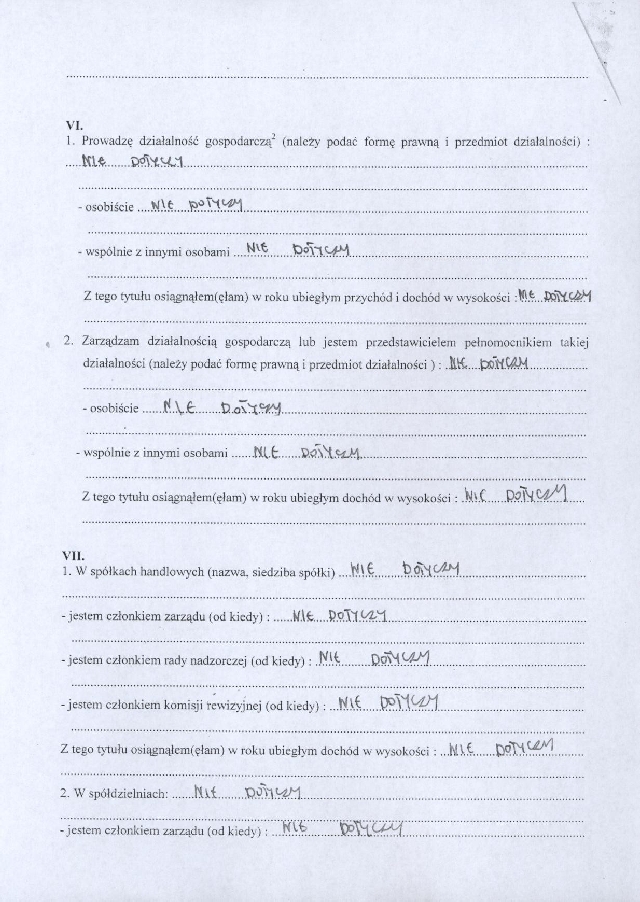 VI.
1. Prowadzę działalność gospodarczą² (należy podać formę prawną i przedmiot działalności) :
NIE DOTYCZY
- osobiście NIE DOTYCZY
- wspólnie z innymi osobami NIE DOTYCZY
Z tego tytułu osiągnąłem(ęłam) w roku ubiegłym przychód i dochód w wysokości : NIE DOTYCZY
2. Zarządzam działalnością gospodarczą lub jestem przedstawicielem pełnomocnikiem takiej
działalności (należy podać formę prawną i przedmiot działalności ) : NIE DOTYCZY
- osobiście NIE DOTYCZY
- wspólnie z innymi osobami NIE DOTYCZY
Z tego tytułu osiągnąłem(ęłam) w roku ubiegłym dochód w wysokości : NIE DOTYCZY
VII.
1. W spółkach handlowych (nazwa, siedziba spółki) NIE DOTYCZY
- jestem członkiem zarządu (od kiedy) : NIE DOTYCZY
- jestem członkiem rady nadzorczej (od kiedy) : NIE DOTYCZY
- jestem członkiem komisji rewizyjnej (od kiedy) : NIE DOTYCZY
Z tego tytułu osiągnąłem(ęłam) w roku ubiegłym dochód w wysokości : NIE DOTYCZY
2. W spółdzielniach: NIE DOTYCZY
- jestem członkiem zarządu (od kiedy) : NIE DOTYCZY